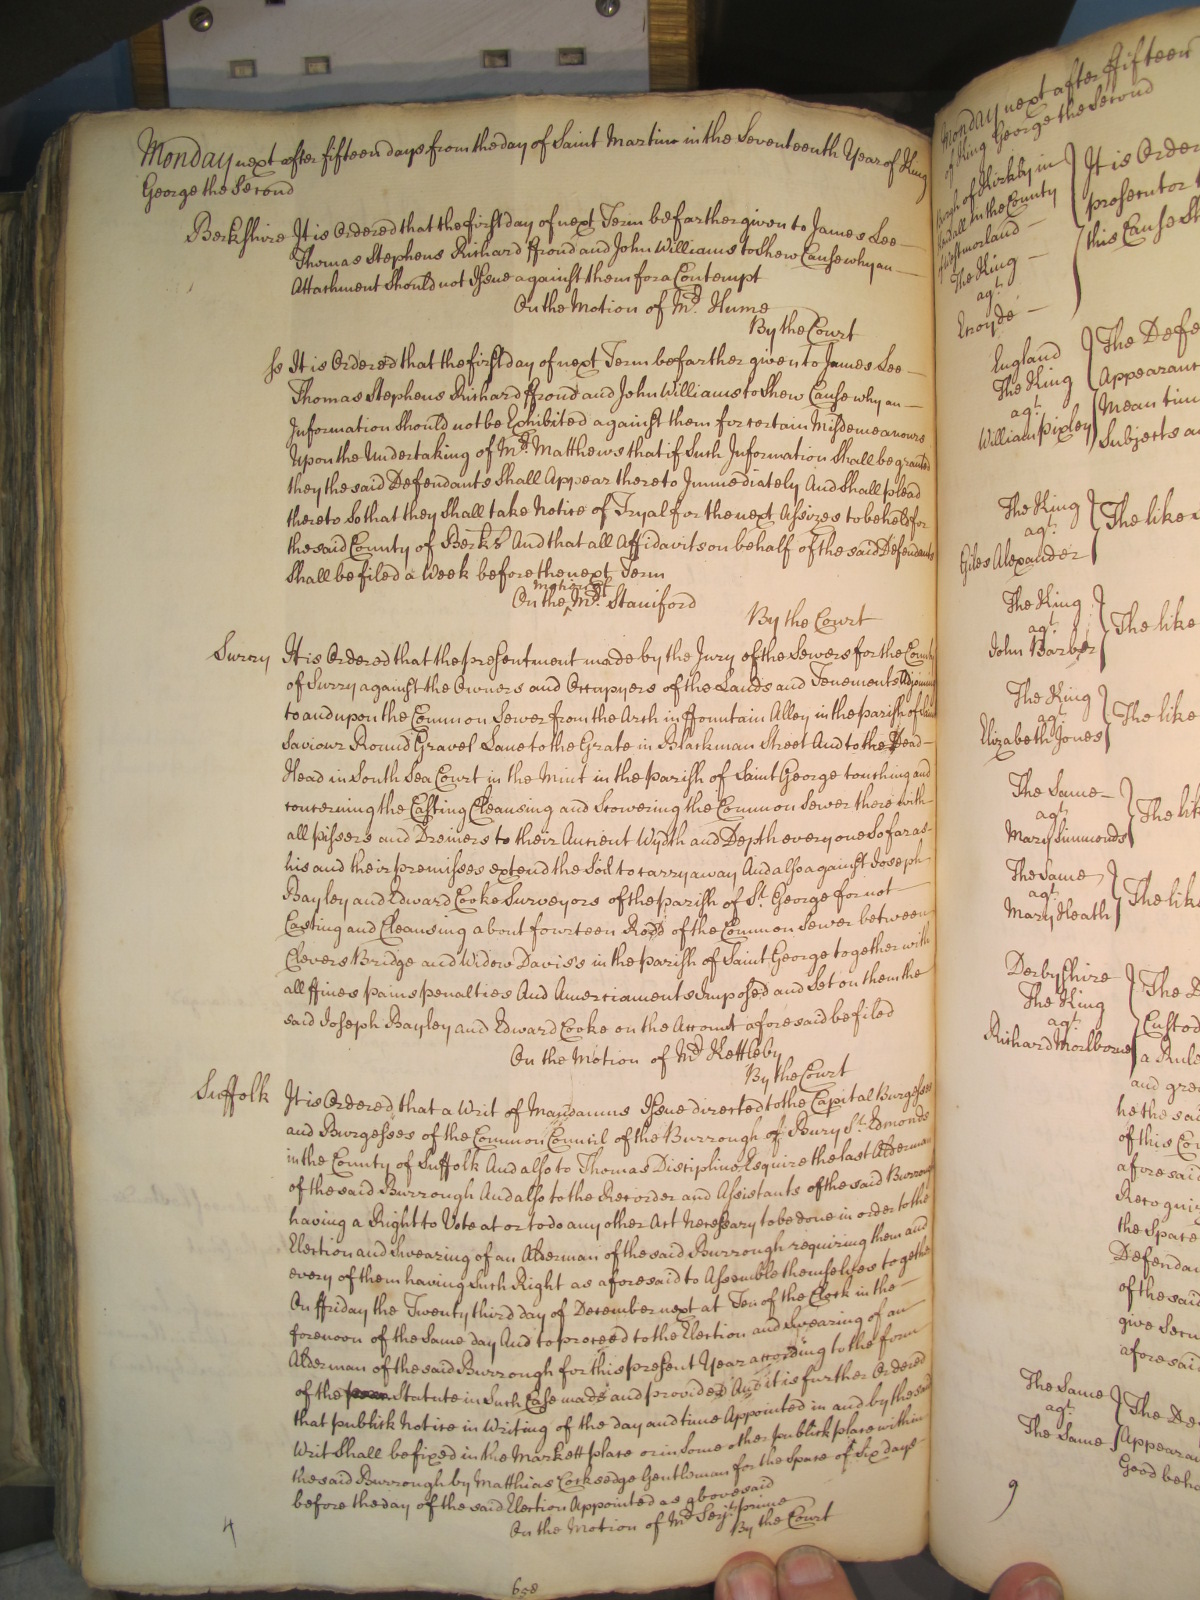 Monday next after fifteen days from the day of Saint Martin in the Seventeenth Year of King
George the Second
Berkshire It is Ordered that the first day of next Term be farther given to James Lee
Thomas Stephens Richard ffroud and John Williams to Shew Cause why an
Attachment Should not Issue against them for a Contempt
On the Motion of Mr. Hume
By the Court
It is Ordered that the first day of next Term be farther given to James Lee
Thomas Stephens Richard ffroud and John Williams to Shew Cause why an
Information Should not be Exhibited against them for certain Misdemeanours
Upon the Undertaking of Mr. Matthews that if Such Information Shall be granted
they the said Defendants Shall Appear thereto Immediately And Shall plead
thereto So that they Shall take Notice of Tryal for the next Assizes to be held for
the said County of Berks And that all Affidavits on behalf of the said Defendants
Shall be filed a Week before the next Term
On the motion of Mr. Staniford
By the Court
Surry It is Ordered that the presentment made by the Jury of the Sewers for the County
of Surry against the Owners and Occupyers of the Lands and Tenements Adjoining
to and upon the Common Sewer from the Arch in ffountain Alley in the parish of Saint
Saviour Round Gravel Lane to the Grate in Blackman Street And to the Dead
Head in South Sea Court in the Mint in the parish of Saint George touching and
concerning the Casting Cleansing and Scowering the Common Sewer there with
all pissers and Dreiners to their Ancient Wydth and Depth every one So far as
his and their premisses extend the Soil to carry away And also against Joseph
Bayley and Edward Cooke Surveyors of the parish of St. George for not
Casting and Cleansing about fourteen Rodd of the Common Sewer between
Clevers Bridge and Widow Davis's in the parish of Saint George together with
all ffines pains penalties And Amerciaments Imposed and Set on them the
said Joseph Bayley and Edward Cooke on the Account aforesaid be filed
On the Motion of Mr. Kettleby
By the Court
Suffolk It is Ordered that a Writ of Mandamus Issue directed to the Capital Burgesses
and Burgesses of the Common Council of the Burrough of Bury St. Edmonds
in the County of Suffolk And also to Thomas Discipline Esquire the last Alderman
of the said Burrough And also to the Recorder and Assistants of the said Burrough
having a Right to Vote at or to do any other Act Necessary to be done in order to the
Election and Swearing of an Alderman of the said Burrough requiring them and
every of them having Such Right as aforesaid to Assemble themselves together
On ffriday the Twenty third day of December next at Ten of the Clock in the
forenoon of the Same day And to proceed to the Election and Swearing of an
Alderman of the said Burrough for this present Year according to the form
of the Statute in Such Case made and provided And it is further Ordered
that publick Notice in Writing of the day and time Appointed in and by the said
Writ Shall be fixed in the Markett place or in Some other publick place within
the said Burrough by Matthias Corksedge Gentleman for the Space of Six days
before the day of the said Election Appointed as abovesaid
On the Motion of Mr. Serjt. prime
By the Court
4
658
Monday next after ffifteen
of King George the Second
of Kirkby in
Kendall in the County
of Westmorland
The King
agt.
Croyde
It is Order
prosecutor
this Cause Sh
England
The King
agt.
William pixley
The Defe
Appearan
Mean tim
Subjects a
The King
agt.
Giles Alexander
The like
The King
agt.
John Barber
The like
The King
agt.
Elizabeth Jones
The like
The Same
agt.
Mary Simmonds
The lik
The Same
agt.
Mary Heath
The lik
Derbyshire
The King
agt.
Richard Morlborne
The D
Custod
a Rule
and gre
he the sai
of this Co
aforesaid
Recogni
the Space
Defendan
of the said
give Secu
aforesai
The Same
agt.
The Same
The De
Appeara
Good beha
9